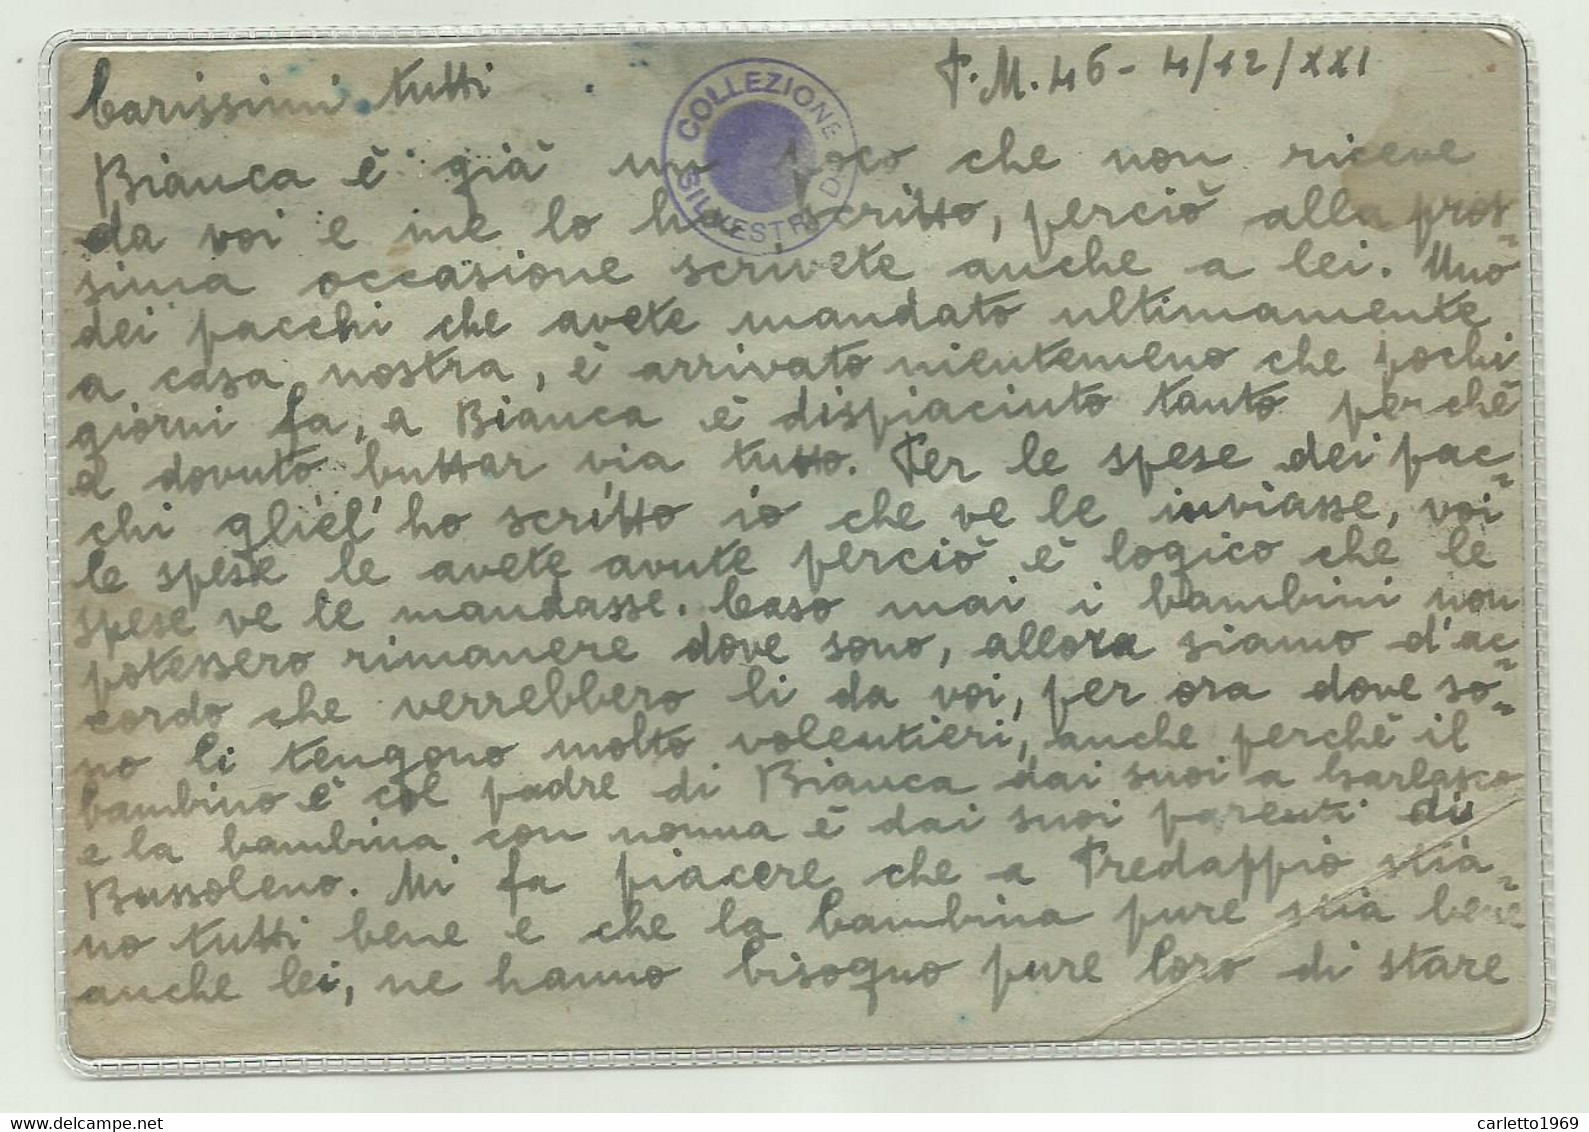 P.M. 46 - 4/12/XXI
Carissimi tutti
COLLEZIONE DI SILVESTRI
Bianca è già un poco che non riceve
da voi e me lo ha scritto, perciò alla pros-
sima occasione scrivete anche a lei. Uno
dei pacchi che avete mandato ultimamente
a casa nostra, è arrivato nientemeno che pochi
giorni fa, a Bianca è dispiaciuto tanto perchè
a dovuto buttar via tutto. Per le spese dei pac-
chi gliel'ho scritto io che ve le inviasse, voi
le spese le avete avute perciò è logico che le
spese ve le mandasse. Caso mai i bambini non
potessero rimanere dove sono, allora siamo d'ac-
cordo che verrebbero li da voi, per ora dove so-
no li tengono molto volentieri, anche perchè il
bambino è col padre di Bianca dai suoi a Garlasco
e la bambina con nonna è dai suoi parenti di
Bussoleno. Mi fa piacere che a Predappio stia-
no tutti bene e che la bambina pure stia bene
anche lei, ne hanno bisogno pure loro di stare
carletto1969